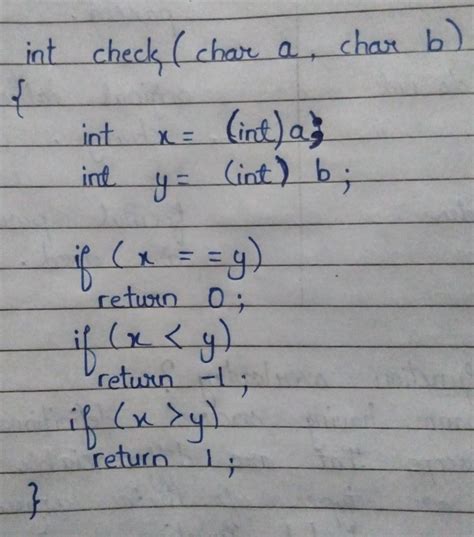 int check(char a, char b)
{
int x = (int)a;
int y = (int) b;
if (x = = y)
return 0;
if (x < y)
return -1;
if (x > y)
return 1;
}